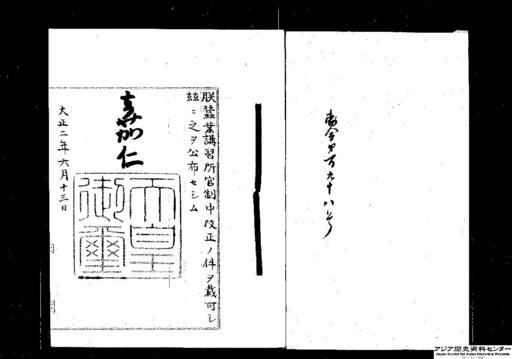 勅令第百九十八号
朕蚕業講習所官制中改正ノ件ヲ裁可シ
茲ニ之ヲ公布セシム
嘉仁
天皇御璽
大正二年六月十三日
アジア歴史資料センター
Japan Center for Asian Historical Records